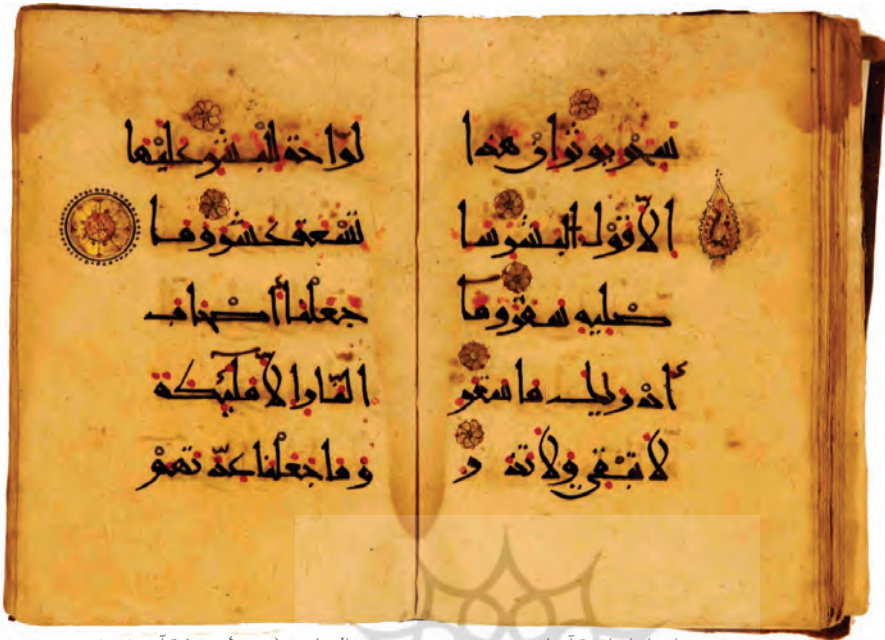 سحر يوثر ان هذا
الا قول البشر سا
صليه سقر وما
أدريك ما سقر
لا تبقي ولا تذ ر
لواحة للبشر عليها
تسعة عشر وما
جعلنا أصحاب
النار الا ملئكة
وما جعلنا عدتهم